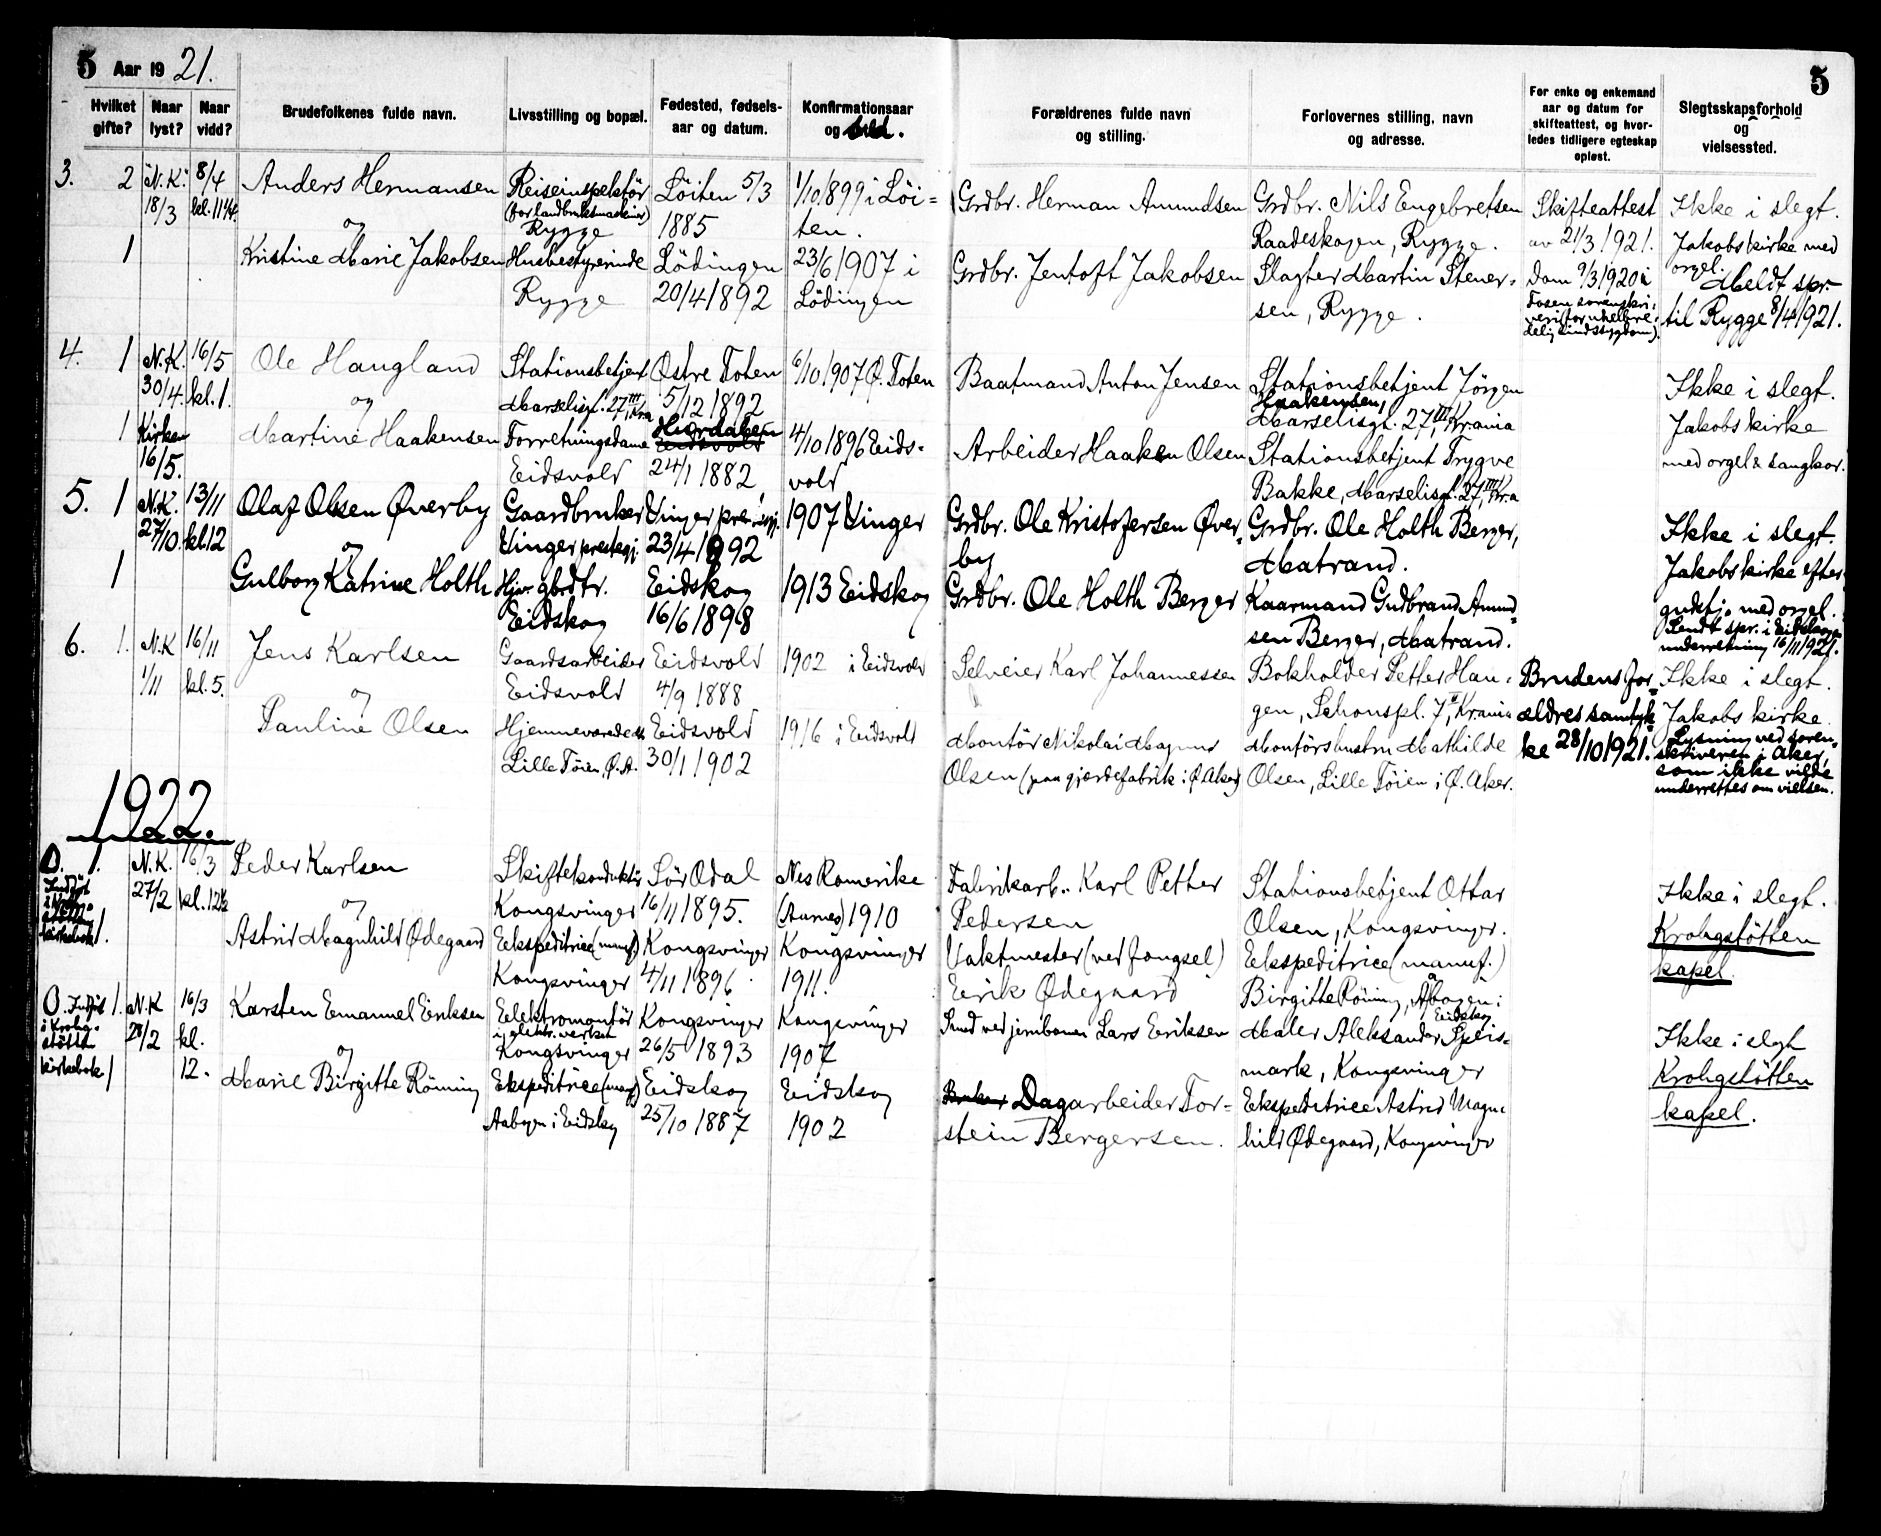 5 Aar 1921. 5
Hvilket gifte? Naar lyst? Naar vidd? Brudefolkenes fulde navn. Livsstilling og bopæl. Fødested, fødsels-aar og datum. Konfirmationsaar og sted. Forældrenes fulde navn og stilling. Forlovernes stilling, navn og adresse. For enke og enkemand aar og datum for skifteattest, og hvor-ledes tidligere egteskap opløst. Slegtsskapsforhold og vielsessted.
3. 2 N.K. 8/4 Anders Hermansen Reiseinspektör Löiten 5/3 1/10/899 i Löi- Grdbr. Herman Amundsen Grdbr. Nils Engebretsen Skifteattest Ikke i slegt.
18/3 kl. 11¼ og (for landbruksmaskiner) Rygge 1885 ten. Raadeskogen, Rygge. av 21/3 1921. Jakobs kirke med
1 Kristine Marie Jakobsen Husbestyrerinde Lödingen 23/6 1907 i Grdbr. Jentoft Jakobsen Slagter Martin Stener- Dom 9/3 1920 i orgel. Meldt spr.
Rygge 20/4 1892 Lödingen sen, Rygge. Fosen sorenskri- til Rygge 8/4 1921.
veri (for uhelbre-
delig sindssygdom).
4. 1 N.K. 16/5 Ole Haugland Stationsbetjent Østre Toten 6/10 1907 Ø. Toten Baatmand Anton Jensen Stationsbetjent Jörgen Ikke i slegt.
30/4. kl. 1. og Marselisgt. 27 III, Kra 5/12 1892 Haakensen, Marselisgt. 27 III, Krania Jakobs kirke
1 Kirken Martine Haakensen Forretningsdame Hurdalen Eidsvold 4/10 1896 Eids- Arbeider Haaken Olsen Stationsbetjent Trygve med orgel & sangkor.
16/5. Eidsvold 24/1 1882 vold Bakke, Marselisgt. 27 III, Kr.a
5. 1 N.K. 13/11 Olaf Olsen Øverby Gaardbruker Vinger prestegj. 1907 Vinger Grdbr. Ole Kristofersen Øver- Grdbr. Ole Holth Berger, Ikke i slegt.
27/10. kl. 12 og Vinger prestegj. 23/4 1892 by Matrand. Jakobs kirke efter
1 Gulborg Katrine Holth Hjv. gbrdtr. Eidskog 1913 Eidskog Grdbr. Ole Holth Berger Kaarmand Gudbrand Amund- gudstj. med orgel.
Eidskog 16/6 1898 sen Berger, Matrand. Sendt spr. i Eidskogen
underretning 16/11 1921.
6. 1. N.K 16/11 Jens Karlsen Gaardsarbeider Eidsvold 1902 i Eidsvold Selveier Karl Johannessen Bokholder Petter Hau- Brudens for- Ikke i slegt.
1/11 kl. 5. og Eidsvold 4/9 1888 gen, Schouspl. 7 II, Krania ældres samtyk- Jakobs kirke.
Pauline Olsen Hjemmeværende Eidsvold 1916 i Eidsvold Montör Nikolai Magnus Montörshustru Mathilde ke 28/10 1921. Lysning ved soren-
Lille Töien, Ø. A. 30/1 1902 Olsen (paa gjærdefabrik i Ø. Aker) Olsen, Lille Töien i Ø. Aker. skriveren i Aker,
som ikke vilde
underrettes om vielsen.
1922.
0. 1. N.K. 16/3 Peder Karlsen Skiftekonduktör Sör Odal Nes Romerike Fabrikarb. Karl Petter Stationsbetjent Ottar Ikke i slegt.
Indført i Krohg-støtten kirkebok 27/2 kl. 12½ og Kongsvinger 16/11 1895. (Aarnes) 1910 Pedersen Olsen, Kongsvinger. Krohgstötten
1. Astrid Magnhild Ødegaard Ekspeditrice (manuf.) Kongsvinger Kongsvinger Vaktmester (ved fengsel) Ekspeditrice (manuf.) kapel.
Kongsvinger 4/11 1896. 1911. Eirik Ødegaard Birgitte Röning, Åbogen i Eidskog
0. Indført i Krohg-støtt. kirkebok 1. N.K 16/3 Karsten Emanuel Eriksen Elektromontör Kongsvinger Kongsvinger Smed ved jernbanen Lars Eriksen Maler Aleksander Speis- Ikke i slegt
28/2 kl. 12. og i elektr. verket Kongsvinger 26/5 1893 1907 mark, Kongsvinger Krohgstötten
1 Marie Birgitte Röning Ekspeditrice (manf.) Eidskog Eidskog Bruker Dagarbeider Tor- Ekspeditrice Astrid Magn- kapel.
Aabogen i Eidskog 25/10 1887 1902 stein Bergersen. hild Ødegaard, Kongsvinger